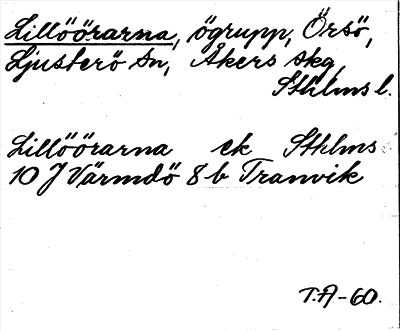 Lillöörarna, ögrupp, Örsö,
Ljusterö sn, Åkers skg,
Sthlms l.
Lillöörarna ek Sthlms
10 J Värmdö 8b Tranvik
T.A-60.